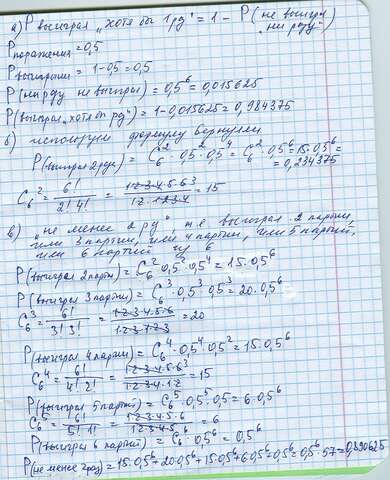 а) P выиграл „хотя бы 1 р." = 1 - P (не выиграл
„ни разу")
P поражения = 0,5
P выигрыш = 1-0,5 = 0,5
P (ни разу не выиграл) = 0,5⁶ = 0,015625
P (выиграл „хотя бы раз") = 1-0,015625 = 0,984375
б) используем формулу Бернулли
P (выиграл 2 раза) = C₆² · 0,5² · 0,5⁴ = C₆² · 0,5⁶ = 15 · 0,5⁶ =
= 0,234375
C₆² = 6! / 2! 4! = 1·2·3·4·5·6 3 / 1·2·1·2·3·4 = 15
в) „не менее 2 раз", т.е выиграл 2 партии,
или 3 партии, или 4 партии, или 5 партий,
или 6 партий из 6
P (выиграл 2 партии) = C₆² · 0,5² · 0,5⁴ = 15 · 0,5⁶
P (выиграл 3 партии) = C₆³ · 0,5³ · 0,5³ = 20 · 0,5⁶
C₆³ = 6! / 3! 3! = 1·2·3·4·5·6 / 1·2·3·1·2·3 = 20
P (выиграл 4 партии) = C₆⁴ · 0,5⁴ · 0,5² = 15 · 0,5⁶
C₆⁴ = 6! / 4! 2! = 1·2·3·4·5·6 3 / 1·2·3·4·1·2 = 15
P (выиграл 5 партий) = C₆⁵ · 0,5⁵ · 0,5 = 6 · 0,5⁶
C₆⁵ = 6! / 5! 1! = 1·2·3·4·5·6 / 1·2·3·4·5 = 6
P (выиграл 6 партий) = C₆⁶ · 0,5⁶ = 0,5⁶
P (не менее 2 раз) = 15·0,5⁶+20·0,5⁶+15·0,5⁶+6·0,5⁶+0,5⁶ = 0,5⁶·57 = 0,890625